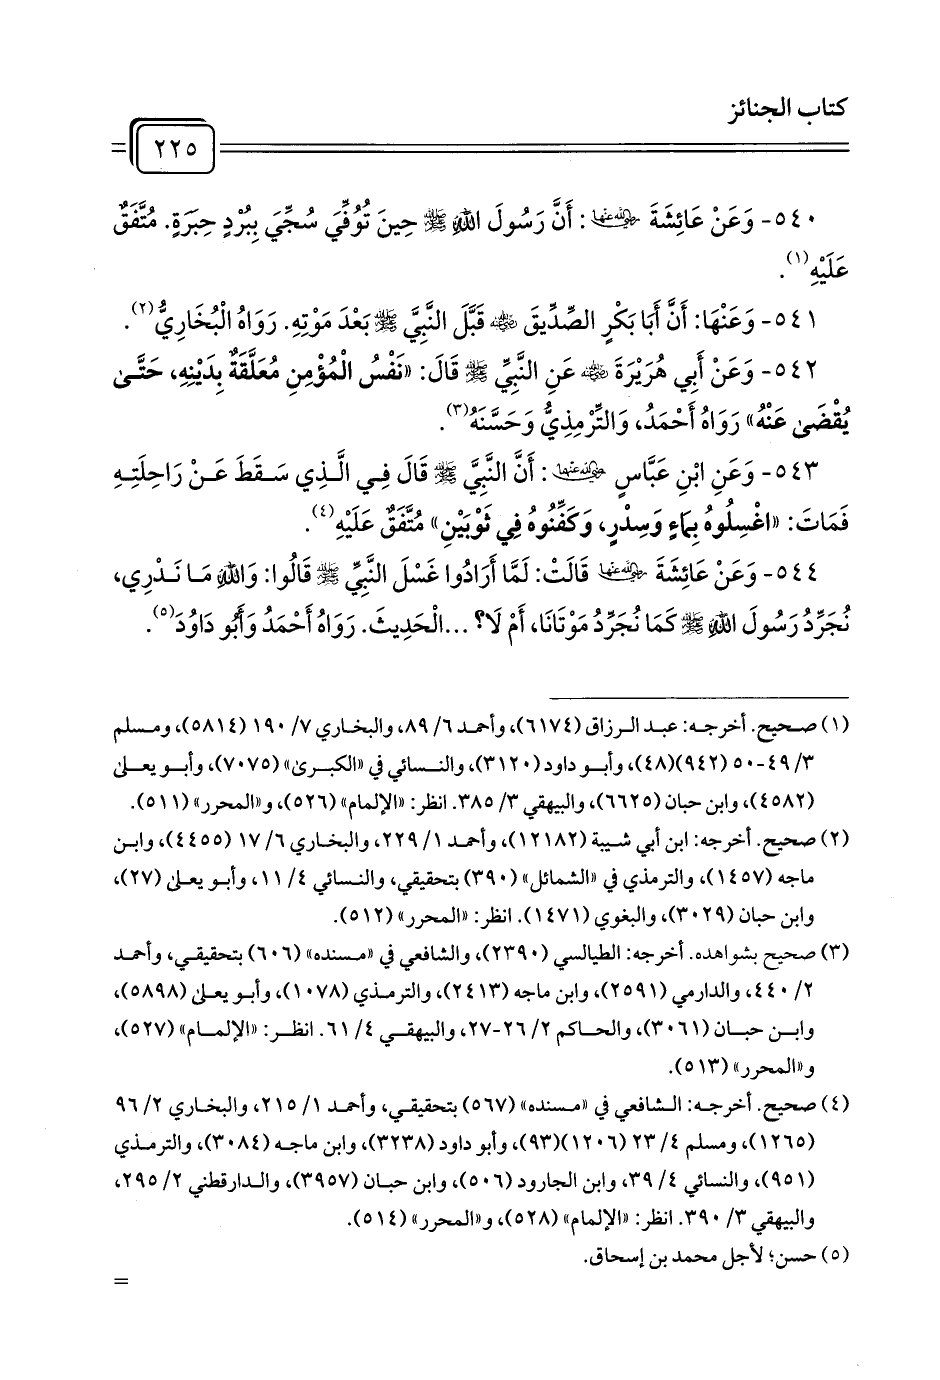 كتاب الجنائز
٢٢٥
٥٤٠- وَعَنْ عَائِشَةَ رضي الله عنها: أَنَّ رَسُولَ اللهِ ﷺ حِينَ تُوُفِّيَ سُجِّيَ بِبُرْدٍ حِبَرَةٍ. مُتَّفَقٌ
عَلَيْهِ(١).
٥٤١- وَعَنْهَا: أَنَّ أَبَا بَكْرٍ الصِّدِّيقَ رضي الله عنه قَبَّلَ النَّبِيَّ ﷺ بَعْدَ مَوْتِهِ. رَوَاهُ الْبُخَارِيُّ(٢).
٥٤٢- وَعَنْ أَبِي هُرَيْرَةَ رضي الله عنه عَنِ النَّبِيِّ ﷺ قَالَ: «نَفْسُ الْمُؤْمِنِ مُعَلَّقَةٌ بِدَيْنِهِ، حَتَّىٰ
يُقْضَىٰ عَنْهُ» رَوَاهُ أَحْمَدُ، وَالتِّرْمِذِيُّ وَحَسَّنَهُ(٣).
٥٤٣- وَعَنِ ابْنِ عَبَّاسٍ رضي الله عنهما: أَنَّ النَّبِيَّ ﷺ قَالَ فِي الَّذِي سَقَطَ عَنْ رَاحِلَتِهِ
فَمَاتَ: «اغْسِلُوهُ بِمَاءٍ وَسِدْرٍ، وَكَفِّنُوهُ فِي ثَوْبَيْنِ» مُتَّفَقٌ عَلَيْهِ(٤).
٥٤٤- وَعَنْ عَائِشَةَ رضي الله عنها قَالَتْ: لَمَّا أَرَادُوا غَسْلَ النَّبِيِّ ﷺ قَالُوا: وَاللهِ مَا نَدْرِي،
نُجَرِّدُ رَسُولَ اللهِ ﷺ كَمَا نُجَرِّدُ مَوْتَانَا، أَمْ لَا؟ ...الْحَدِيثَ. رَوَاهُ أَحْمَدُ وَأَبُو دَاوُدَ(٥).
(١) صحيح. أخرجه: عبد الرزاق (٦١٧٤)، وأحمد ٦/ ٨٩، والبخاري ٧/ ١٩٠ (٥٨١٤)، ومسلم
٣/ ٤٩-٥٠ (٩٤٢)(٤٨)، وأبو داود (٣١٢٠)، والنسائي في «الكبرىٰ» (٧٠٧٥)، وأبو يعلىٰ
(٤٥٨٢)، وابن حبان (٦٦٢٥)، والبيهقي ٣/ ٣٨٥. انظر: «الإلمام» (٥٢٦)، و«المحرر» (٥١١).
(٢) صحيح. أخرجه: ابن أبي شيبة (١٢١٨٢)، وأحمد ١/ ٢٢٩، والبخاري ٦/ ١٧ (٤٤٥٥)، وابن
ماجه (١٤٥٧)، والترمذي في «الشمائل» (٣٩٠) بتحقيقي، والنسائي ٤/ ١١، وأبو يعلىٰ (٢٧)،
وابن حبان (٣٠٢٩)، والبغوي (١٤٧١). انظر: «المحرر» (٥١٢).
(٣) صحيح بشواهده. أخرجه: الطيالسي (٢٣٩٠)، والشافعي في «مسنده» (٦٠٦) بتحقيقي، وأحمد
٢/ ٤٤٠، والدارمي (٢٥٩١)، وابن ماجه (٢٤١٣)، والترمذي (١٠٧٨)، وأبو يعلىٰ (٥٨٩٨)،
وابن حبان (٣٠٦١)، والحاكم ٢/ ٢٦-٢٧، والبيهقي ٤/ ٦١. انظر: «الإلمام» (٥٢٧)،
و«المحرر» (٥١٣).
(٤) صحيح. أخرجه: الشافعي في «مسنده» (٥٦٧) بتحقيقي، وأحمد ١/ ٢١٥، والبخاري ٢/ ٩٦
(١٢٦٥)، ومسلم ٤/ ٢٣ (١٢٠٦)(٩٣)، وأبو داود (٣٢٣٨)، وابن ماجه (٣٠٨٤)، والترمذي
(٩٥١)، والنسائي ٤/ ٣٩، وابن الجارود (٥٠٦)، وابن حبان (٣٩٥٧)، والدارقطني ٢/ ٢٩٥،
والبيهقي ٣/ ٣٩٠. انظر: «الإلمام» (٥٢٨)، و«المحرر» (٥١٤).
(٥) حسن؛ لأجل محمد بن إسحاق.
=